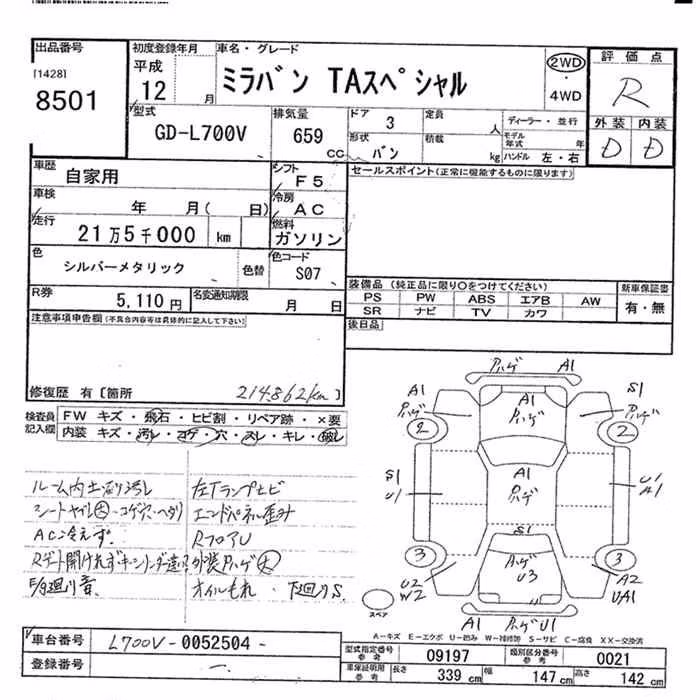 出品番号
[1428]
8501
初度登録年月
平成
12 月
車名・グレード
ミラバン TAスペシャル
2WD
・
4WD
評価点
R
外装 内装
D D
型式
GD-L700V
排気量
659
CC
ドア
3
形状
バン
定員
人
積載
kg
ディーラー・並行
モデル年式 年
ハンドル 左・右
車歴
自家用
シフト
F5
車検
年 月( 日)
冷房
AC
走行
21万5千000 km
燃料
ガソリン
色
シルバーメタリック
色替
色コード
S07
R券
5,110円
名変通知期限
月 日
セールスポイント(正常に機能するものに限ります)
装備品 (純正品に限り○をつけてください)
PS PW ABS エアB AW
SR ナビ TV カワ
新車保証書
有・無
後日品
注意事項申告欄(不具合内容等は具体的に記入して下さい)
修復歴 有〔箇所 214,862km〕
検査員記入欄
FW キズ・飛石・ヒビ割・リペア跡・×要
内装 キズ・汚レ・コゲ・穴・スレ・キレ・破レ
ルーム内 汚レ
シートヤブレ大・コゲ穴・ヘタリ
AC冷えず
Rゲート開けれずキーシリンダ違い?
F/廻り音
左Tランプヒビ
エンドパネル歪み
RフロアU
外装ハゲ大
オイルもれ・下廻りS
A1 ハゲ A1
A1 ハゲ S1 ハゲ
2 2
A1 ハゲ
S1 U1 A1 ハゲ U1 A1
S1
3 ハゲ U3 3
U2 W2 A2 UA1
A1 ハゲ U1
スペア
A-キズ E-エクボ U-凹み W-補修跡 S-サビ C-腐食 XX-交換済
車台番号
L700V-0052504-
登録番号
型式指定番号 参考
09197
類別区分番号 参考
0021
車庫証明用 参考
長さ 339 cm 幅 147 cm 高さ 142 cm